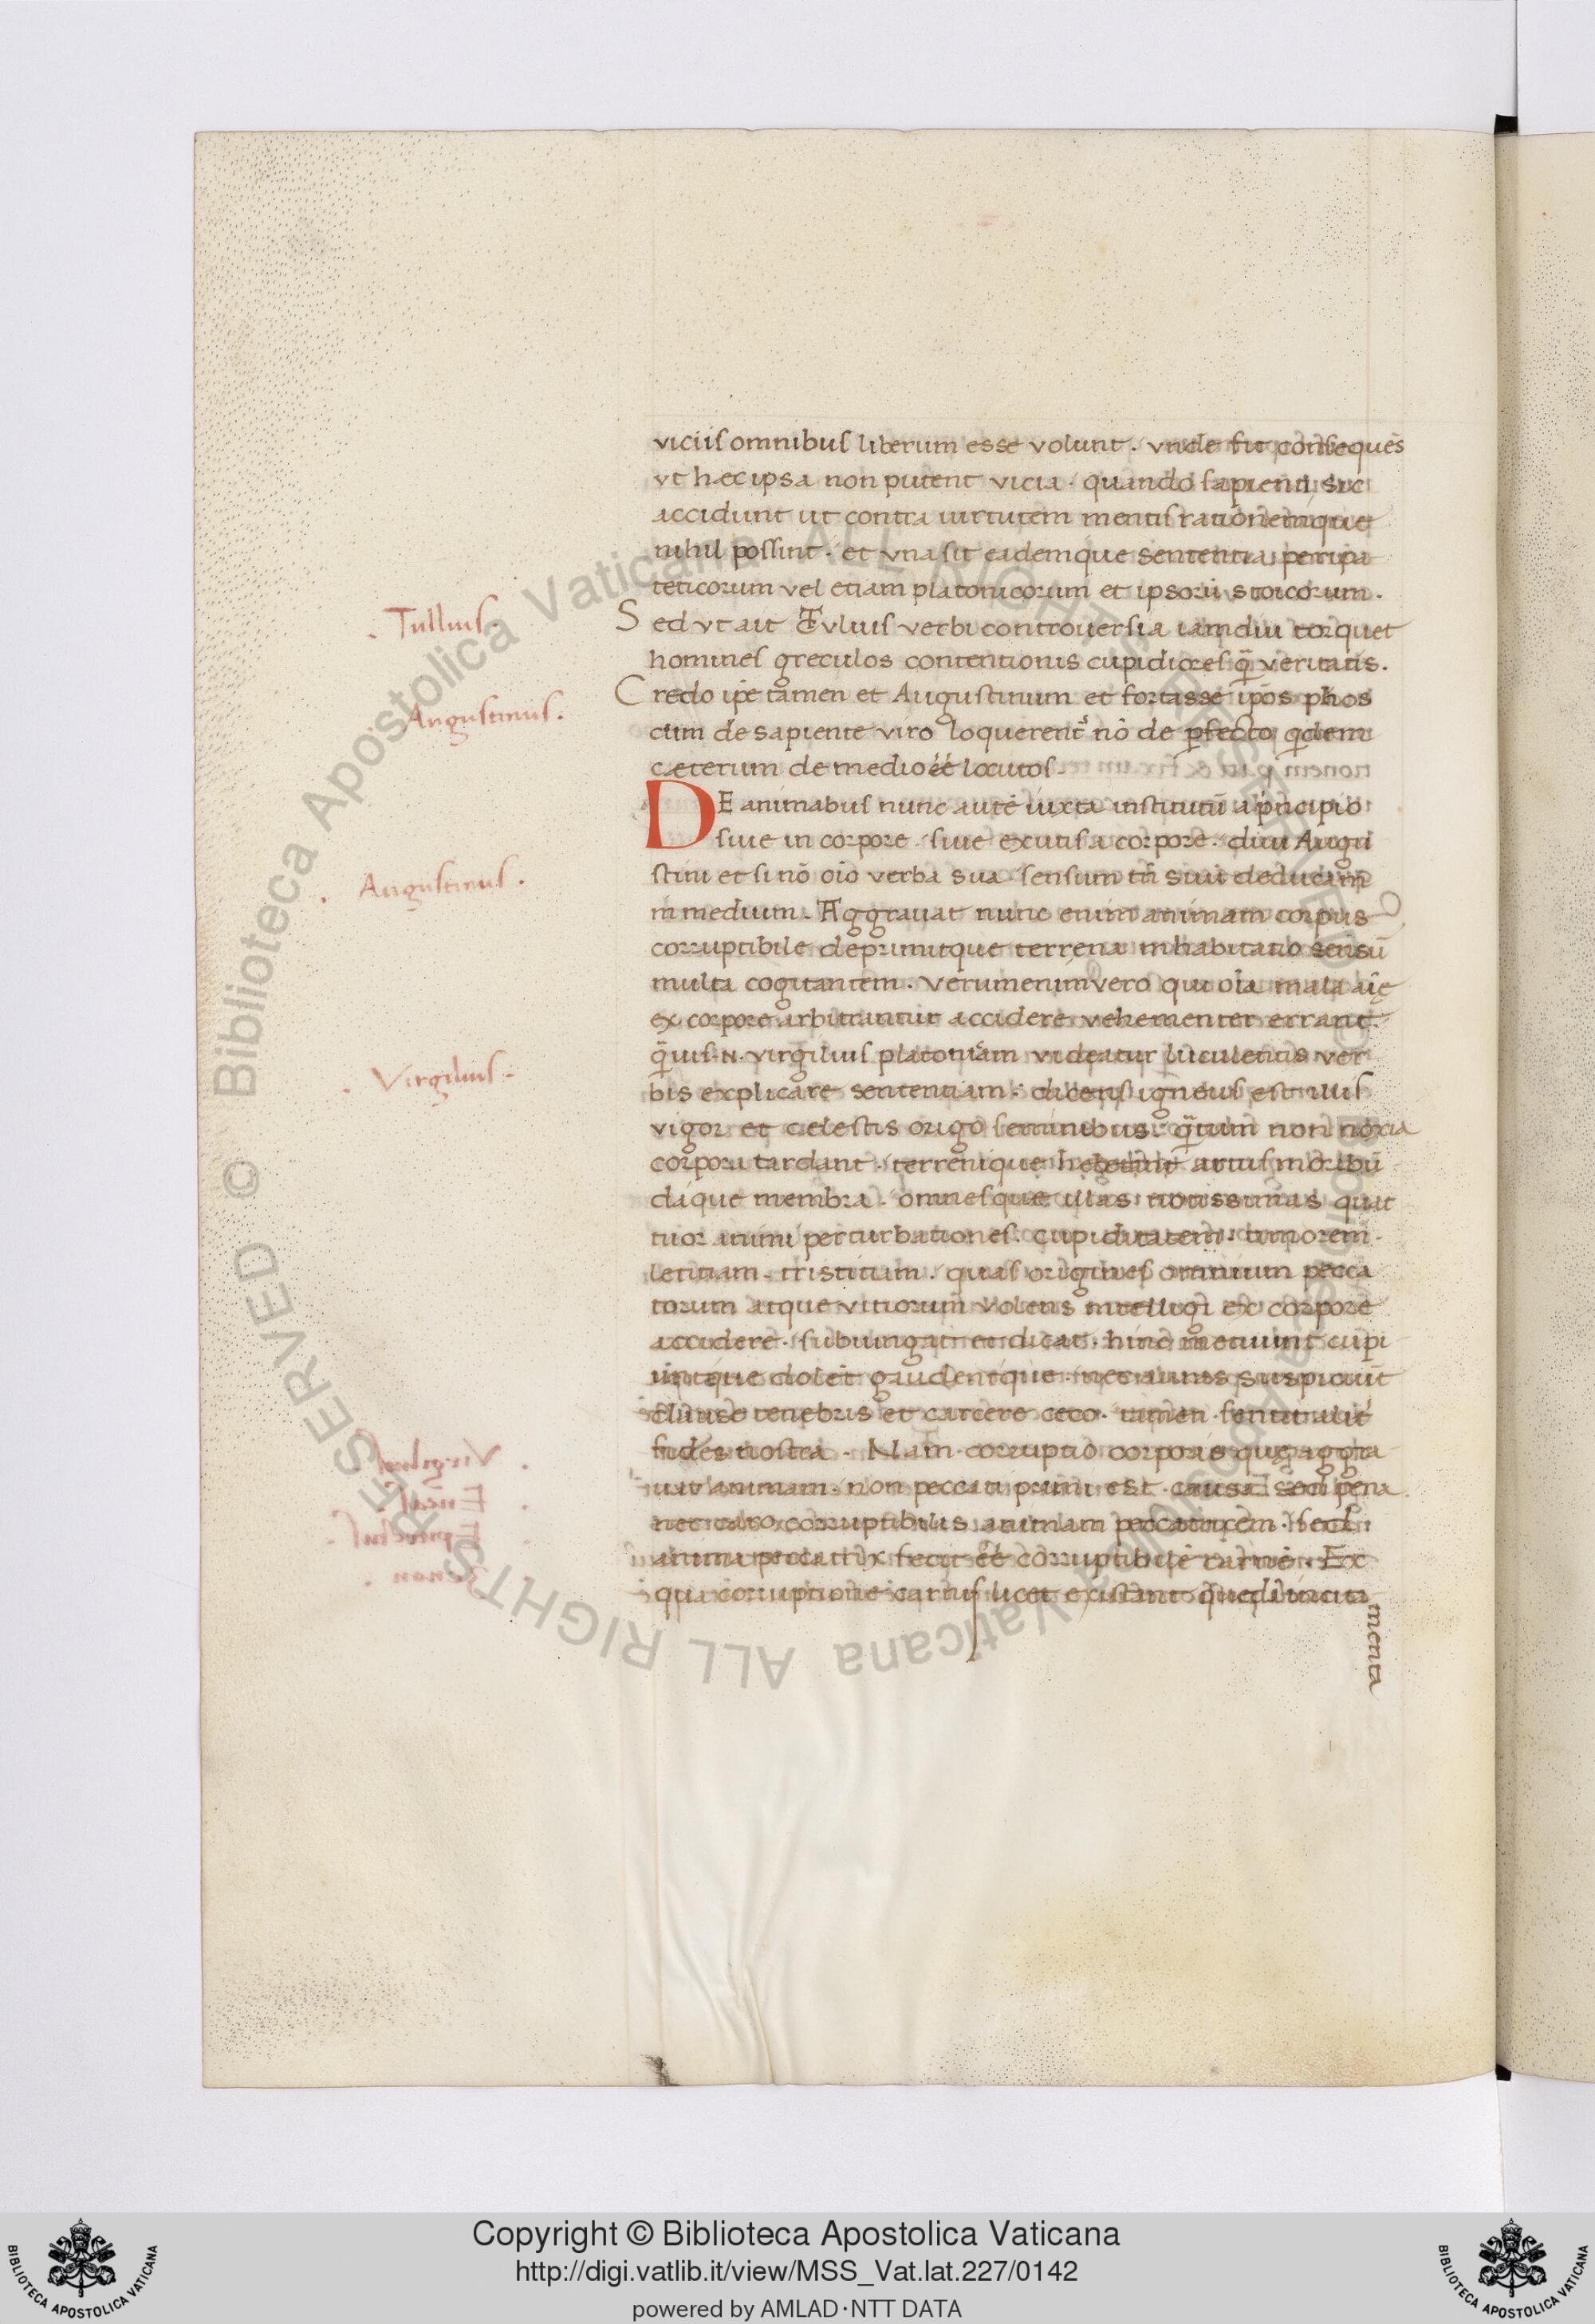 viciis omnibus liberum esse volunt. vnde fit consequẽs
vt hæc ipsa non putent vicia. quando sapienti sic
accidunt ut contra uirtutem mentis rationemque
nihil possint. et vna sit eademque sententia peripa
teticorum vel etiam platonicorum et ipsorũ stoicorum.
Tullius.
Sed vt ait Tulius verbi controuersia iamdiu torquet
homines greculos contentionis cupidiores q̃ veritatis.
Augustinus.
Credo ip̃e tamen et Augustinum et fortasse ip̃os phos
cum de sapiente viro loquerent᷑ nõ de ꝑfecto qdem
cæterum de medio ẽẽ locutos.
DE animabus nunc autẽ iuxta institutũ a pncipio
siue in corpore siue exutis a corpore. diui Augu
Augustinus.
stini et si nõ oĩo verba sua sensum tñ sui deducam
in medium. Aggrauat nunc enim animam corpus
corruptibile deprimitque terrena inhabitatio sensũ
multa cogitantem. verumenimvero qui oĩa mala aĩe
ex corpore arbitrantur accidere vehementer errant.
Virgilius.
q̃uis .N. virgilius platonicam videatur luculentis ver
bis explicare sententiam. dicens igneus est illis
vigor et celestis origo seminibus. q̃tum non noxia
corpora tardant. terrenique hebetant artus moribũ
daque membra. omnesque illas notissimas quat
tuor animi perturbationes. cupiditatem. timorem.
letitiam. tristitiam. quas origines omnium pecca
torum atque vitiorum volens intellegi ex corpore
accidere. subiungat et dicat. hinc metuunt cupi
untque dolẽt gaudentque. nec auras suspiciũt
clause tenebris et carcere ceco. tamen sentit aliẽ
fides nostra. Nam corruptio corporis que aggra
uat animam. non peccati primi est causa sed pena
nec caro corruptibilis animam peccatricem. sed
anima peccatrix fecit ẽẽ corruptibilẽ carnẽ. Ex
qua corruptione carnis licet existant quedã incita
menta
Copyright © Biblioteca Apostolica Vaticana
http://digi.vatlib.it/view/MSS_Vat.lat.227/0142
powered by AMLAD·NTT DATA
BIBLIOTECA APOSTOLICA VATICANA
BIBLIOTECA APOSTOLICA VATICANA
© Biblioteca Apostolica Vaticana ALL RIGHTS RESERVED
© Biblioteca Apostolica Vaticana ALL RIGHTS RESERVED